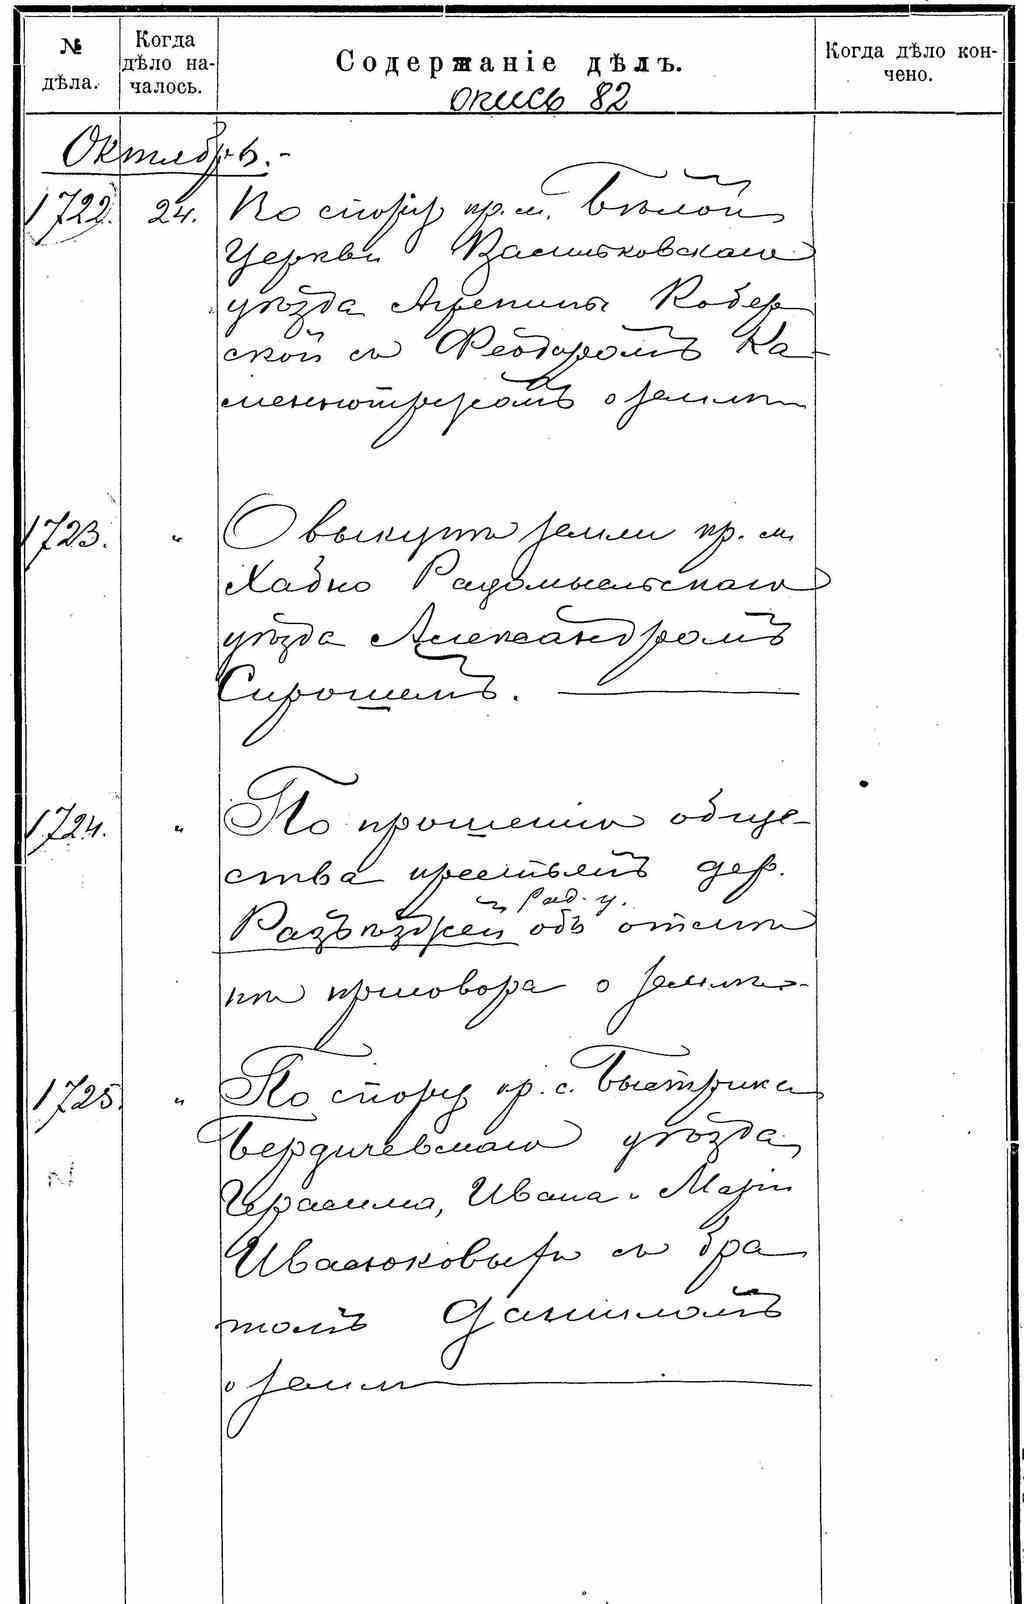 № дѣла.
Когда дѣло началось.
Содержаніе дѣлъ.
Когда дѣло кончено.
опись 82
Октябрь.-
1722. 24. По спору кр. м. Бѣлой
Церкви Васильковскаго
уѣзда Агрепины Кобер
ской съ Феодоромъ Ка-
о землѣ
1723. " О выкупѣ земли кр. м.
Хабно Радомысльскаго
уѣзда Александромъ
Сирошемъ.
1724. " По прошенію обще-
ства крестьянъ дер.
Рад. у.
Разъѣзжей объ отмѣ
нѣ приговора о землѣ.-
1725. " По спору кр. с. Быстрика
Бердичевскаго уѣзда
Герасима, Ивана и Маріи
Ивасюковыхъ съ бра
томъ Даниломъ
о земл